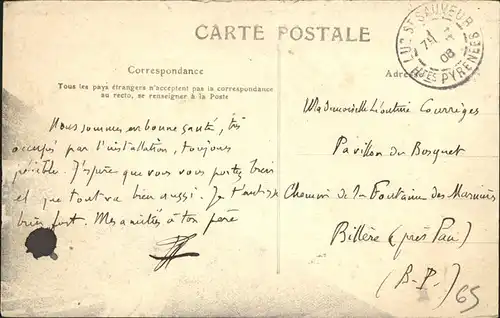 CARTE POSTALE
Correspondance
Tous les pays étrangers n'acceptent pas la correspondance
au recto, se renseigner à la Poste
Nous sommes en bonne santé, très
occupés par l'installation, toujours
pénible. J'espère que vous vous portez bien
et que tout va bien aussi. Je t'embrasse
bien fort. Mes amitiés à ton père
LUZ-ST-SAUVEUR
08
HTES PYRENEES
Adresse
Mademoiselle Courrèges
Pavillon du Bosquet
Chemin de la Fontaine des Marnières
Billère (près Pau)
(B-P-)
65